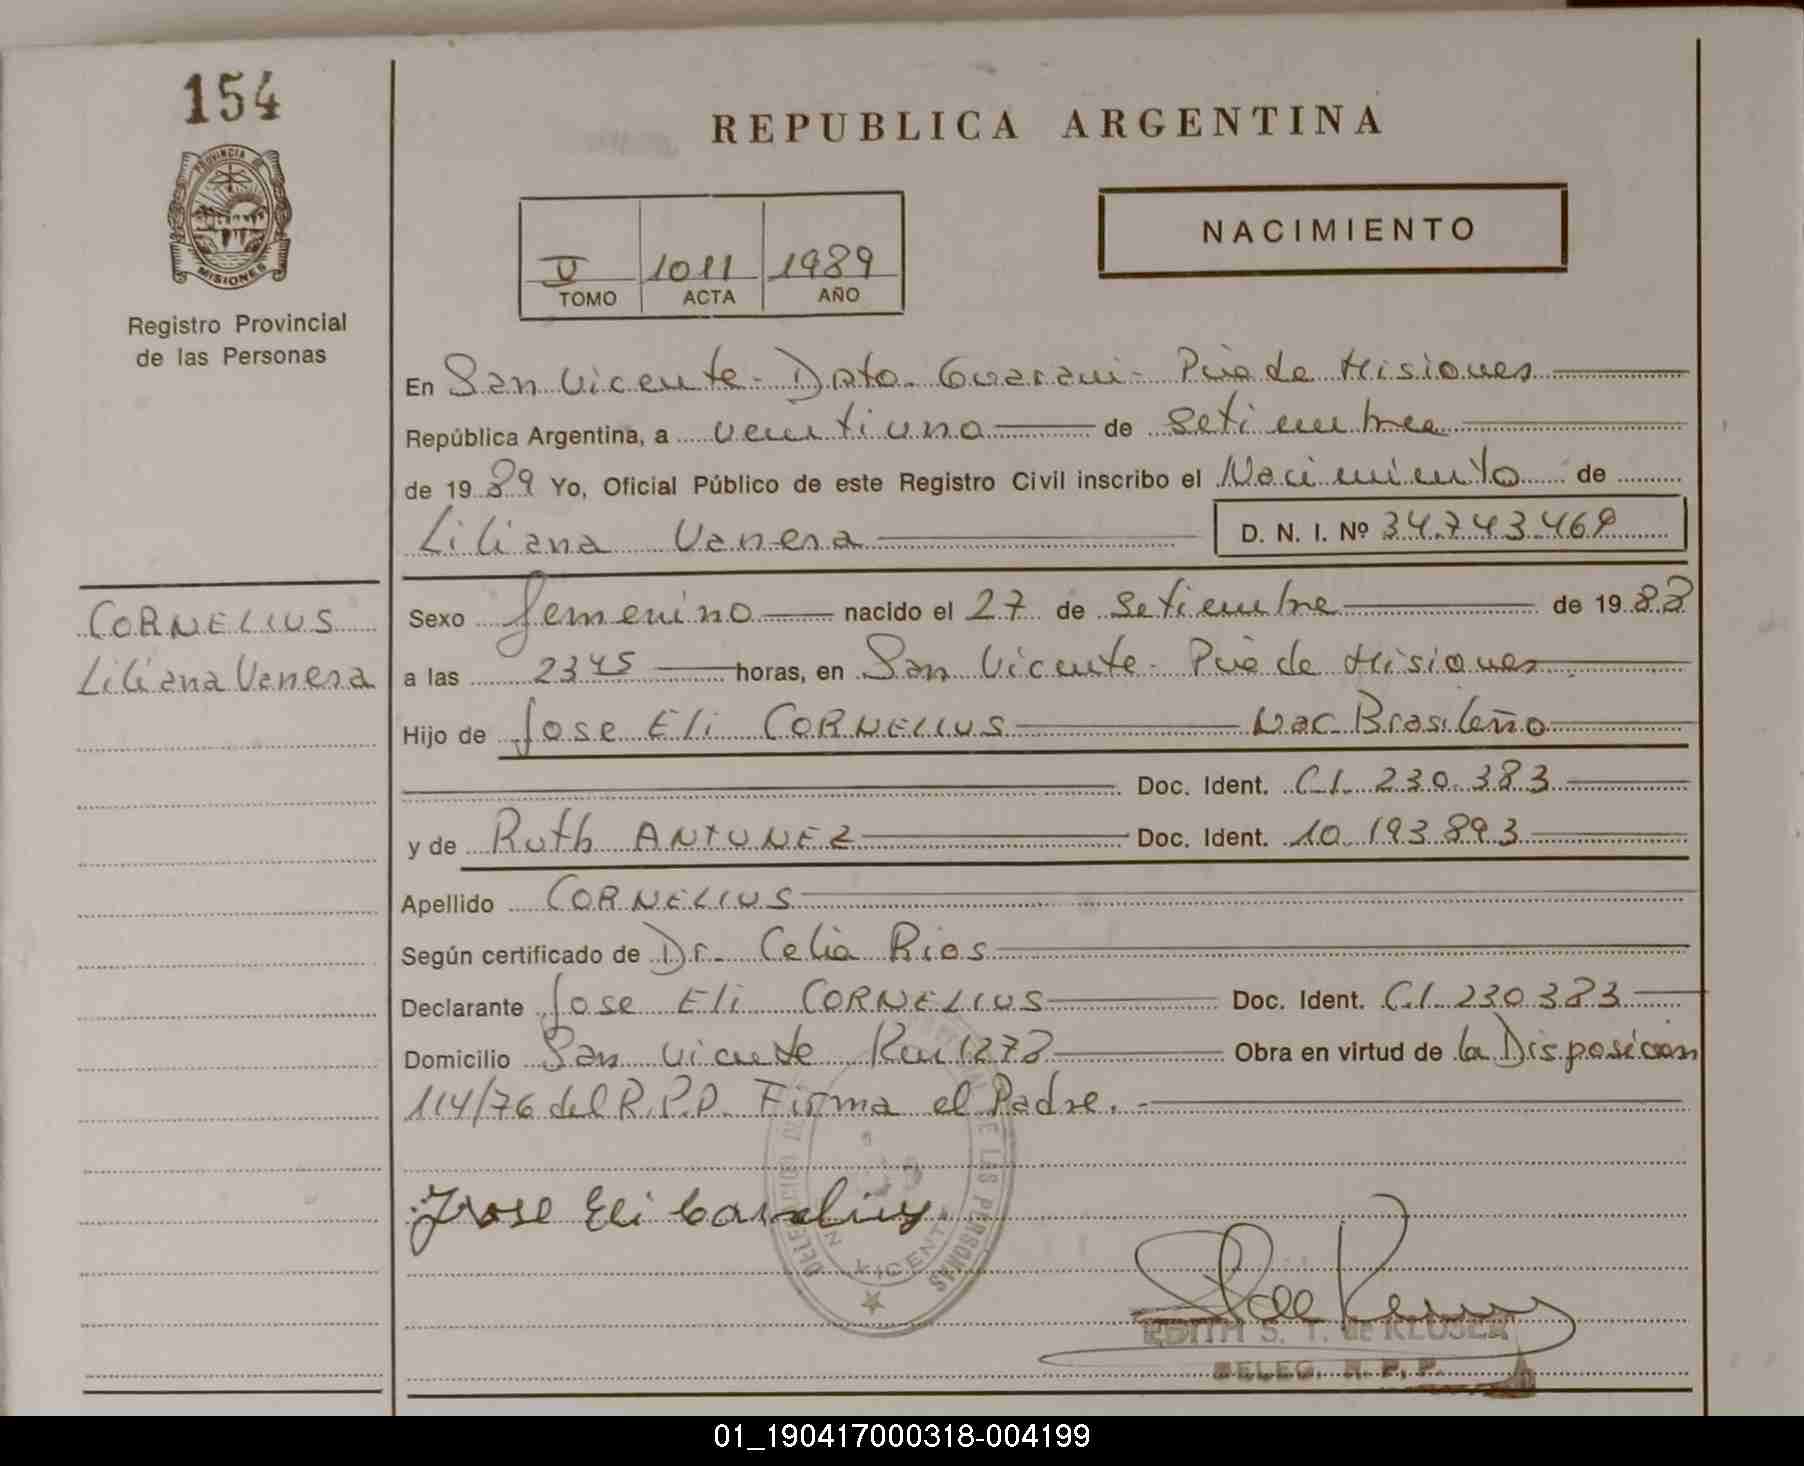 154
REPUBLICA ARGENTINA
PROVINCIA DE
MISIONES
Registro Provincial
de las Personas
NACIMIENTO
V 1011 1989
TOMO ACTA AÑO
En San Vicente - Dpto. Guarani - Pcia de Misiones
República Argentina, a ventiuno de Setiembre
de 1989 Yo, Oficial Público de este Registro Civil inscribo el Nacimiento de
Liliana Vanesa D. N. I. Nº 34.743.469
CORNELIUS
Liliana Vanesa
Sexo femenino nacido el 27 de Setiembre de 1988
a las 2345 horas, en San Vicente - Pcia de Misiones
Hijo de Jose Eli CORNELIUS Nac. Brasileño
Doc. Ident. C.I. 230.383
y de Ruth ANTUNEZ Doc. Ident. 10.193.893
Apellido CORNELIUS
Según certificado de Dr. Celia Rios
Declarante Jose Eli CORNELIUS Doc. Ident. C.I. 230383
Domicilio San Vicente Km 1278 Obra en virtud de la Disposición
114/76 del R.P.P. Firma el Padre. -
Jose Eli Cornelius
DE LAS PERSONAS
VICENTE
EDITH S. T. de KEUSER
DELEG. R. P. P.
01_190417000318-004199